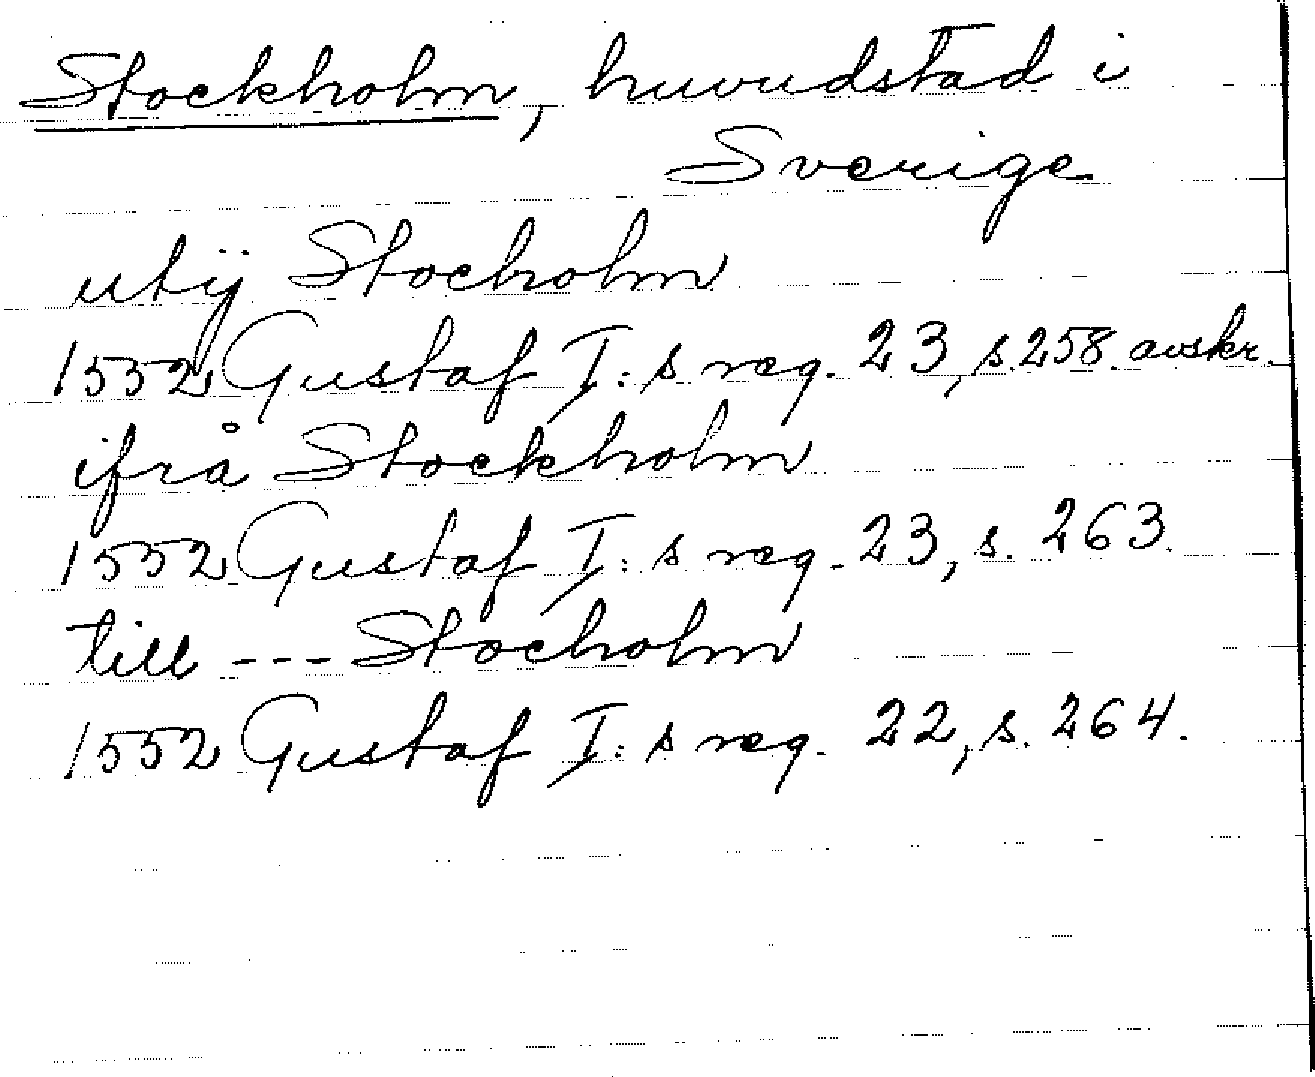 Stockholm, huvudstad i
Sverige
utij Stocholm
1552 Gustaf I:s reg. 23, s. 258. avskr.
ifrå Stockholm
1552 Gustaf I:s reg. 23, s. 263.
till --- Stocholm
1552 Gustaf I:s reg. 22, s. 264.